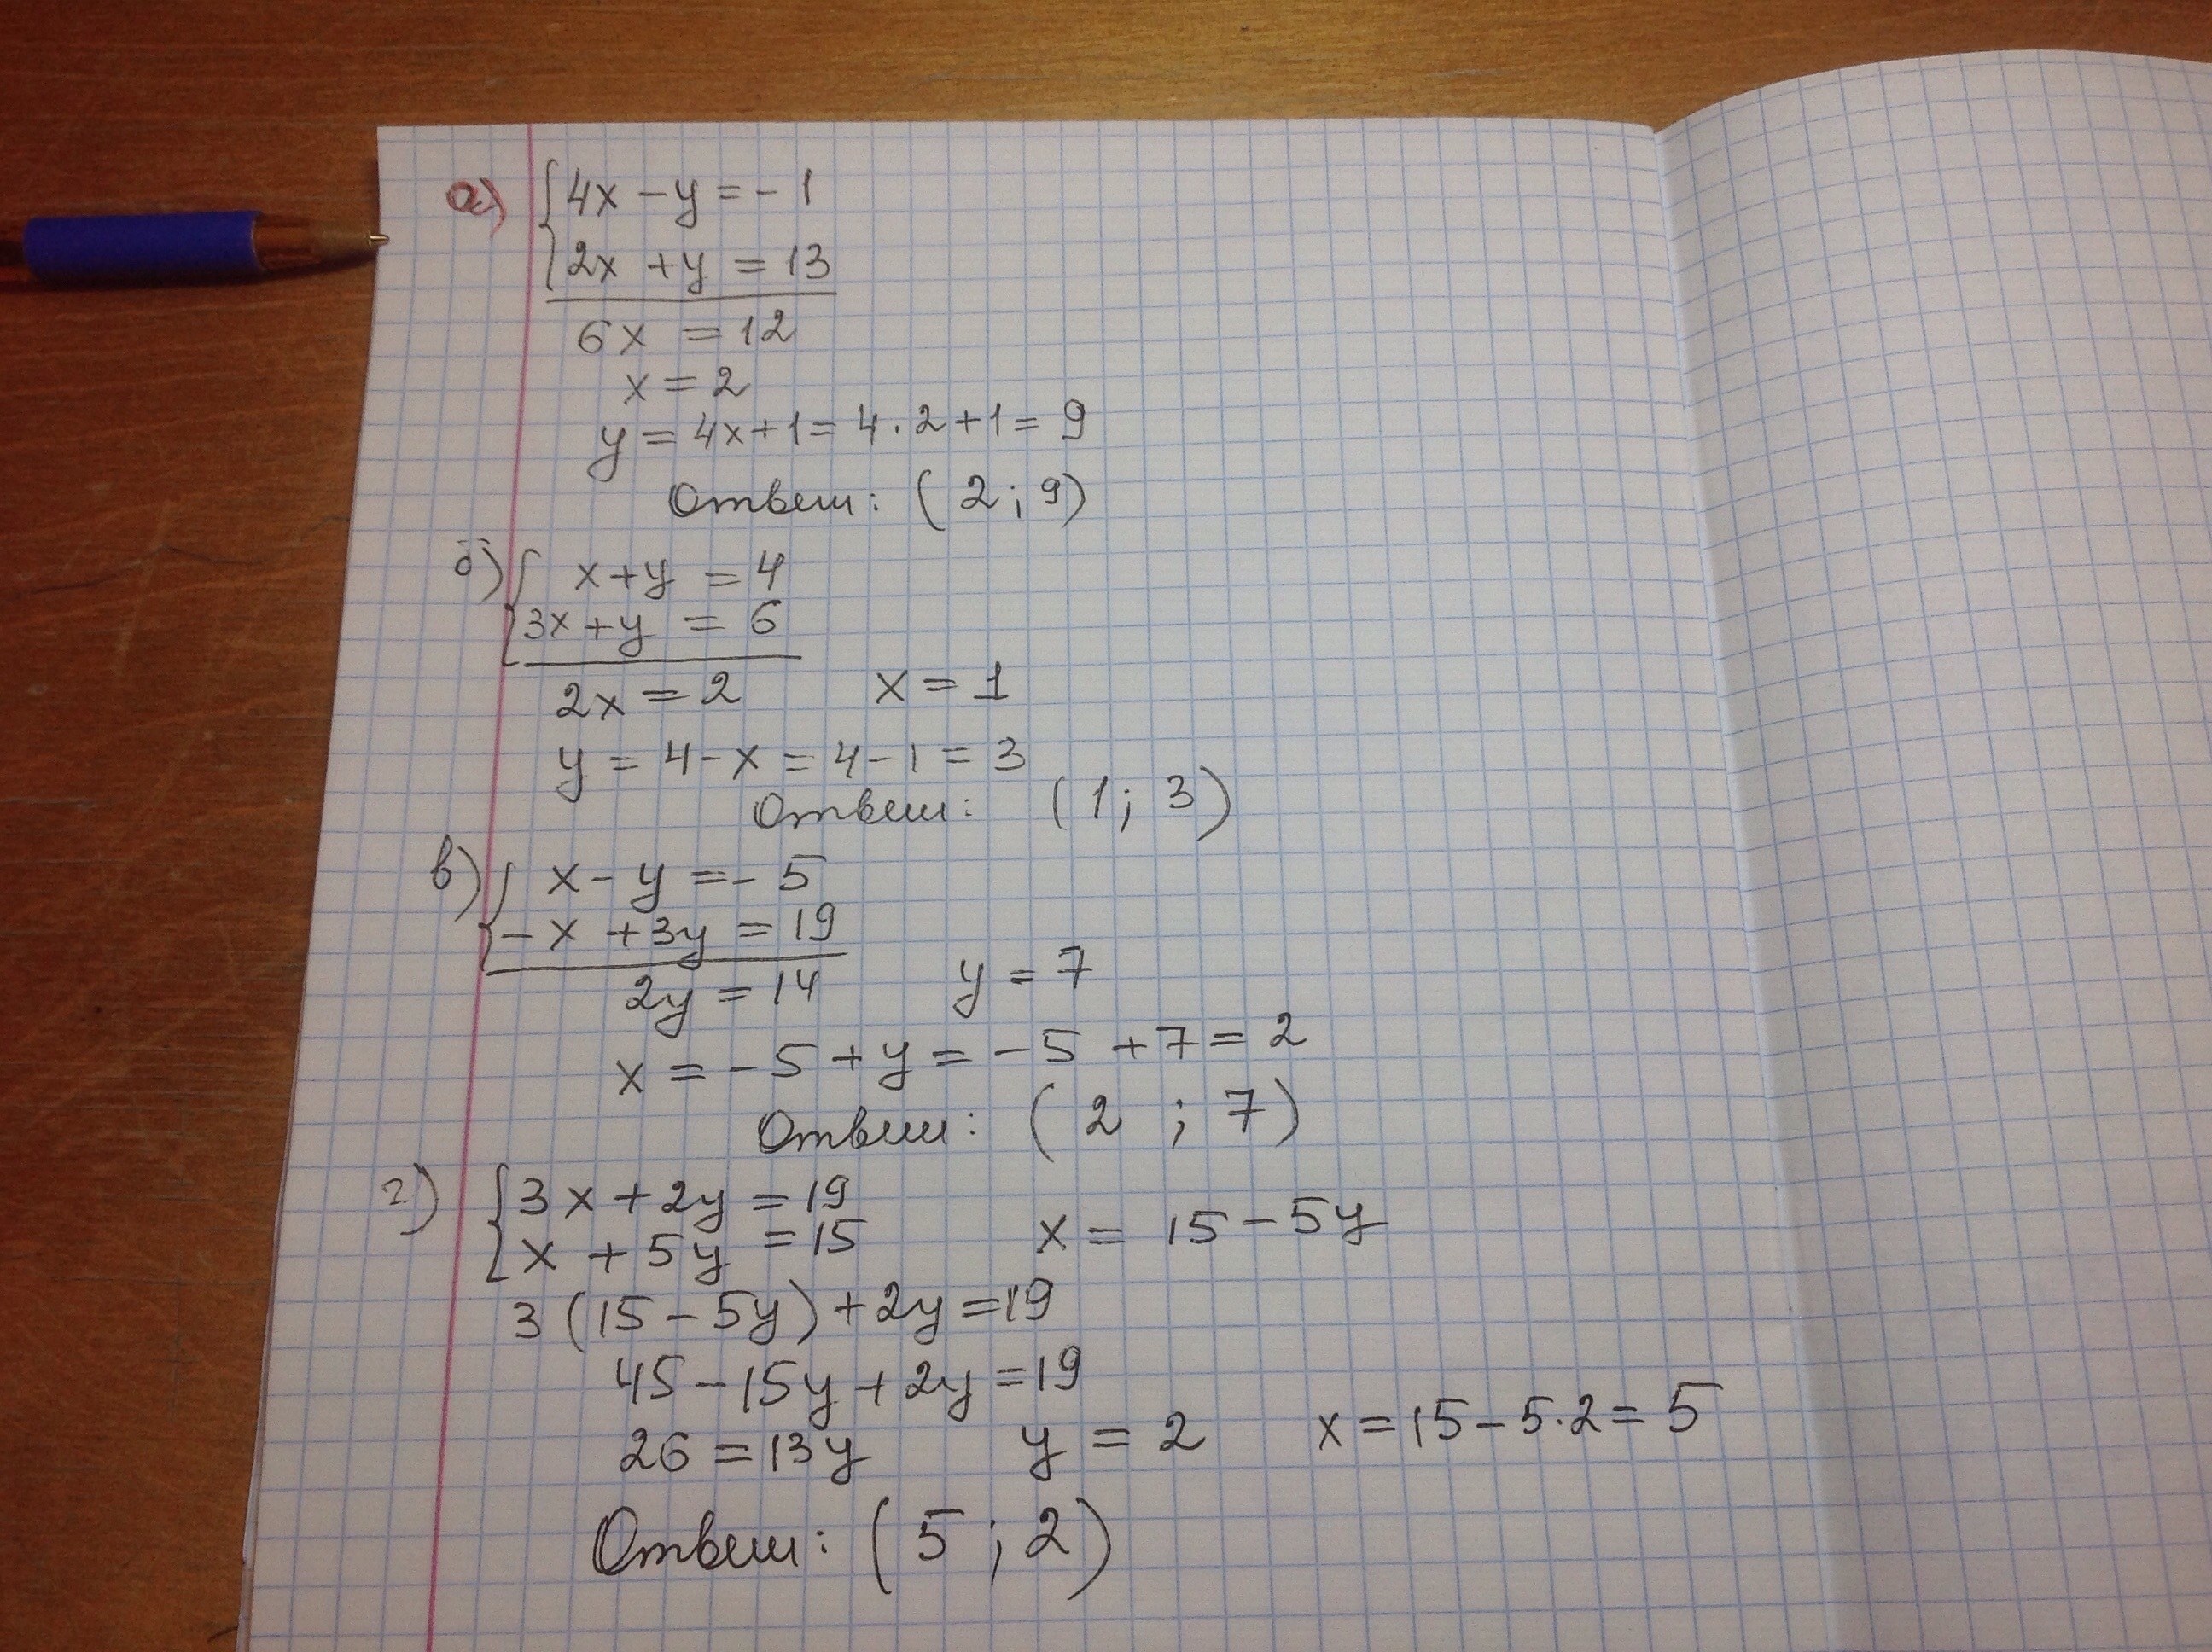 а) {4x - y = - 1
2x + y = 13
6x = 12
x = 2
y = 4x+1 = 4 · 2 + 1 = 9
Ответ: (2 ; 9)
б) { x + y = 4
3x + y = 6
2x = 2 x = 1
y = 4 - x = 4 - 1 = 3
Ответ: (1 ; 3)
в) { x - y = - 5
- x + 3y = 19
2y = 14 y = 7
x = - 5 + y = - 5 + 7 = 2
Ответ: (2 ; 7)
г) {3x + 2y = 19
x + 5y = 15 x = 15 - 5y
3(15 - 5y) + 2y = 19
45 - 15y + 2y = 19
26 = 13y y = 2 x = 15 - 5·2 = 5
Ответ: (5 ; 2)